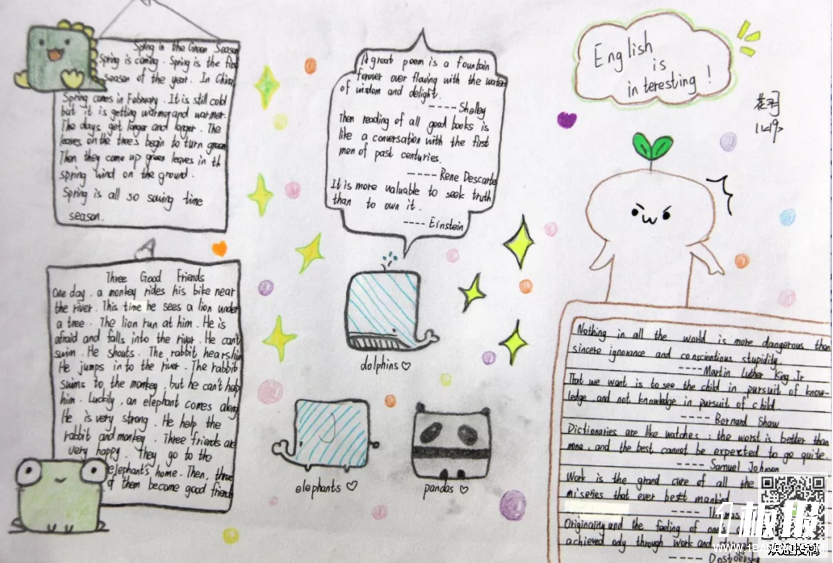 Spring in the Green Season
Spring is coming. Spring is the first
season of the year. In China
Spring comes in February. It is still cold
but it is getting warmer and warmer.
The days get longer and longer. The
leaves on the trees begin to turn green
Then they come up green leaves in th
spring wind on the ground.
Spring is all so sowing time
season.
Three Good Friends
One day, a monkey rides his bike near
the river. This time he sees a lion under
a tree. The lion run at him. He is
afraid and falls into the river. He can't
swim. He shouts. The rabbit hears him
He jumps in to the river. The rabbit
swims to the monkey, but he can't help
him. Luckily, an elephant comes along
He is very strong. He help the
rabbit and monkey. Three friends are
very happy. they go to the
elephant's home. Then, three
of them become good friends
A great poem is a fountain
forever over flowing with the water
of wisdom and delight.
---- Shelley
Then reading of all good books is
like a conversation with the first
men of past centuries.
---- Rene Descarte
It is more valuable to seek truth
than to own it.
---- Einstein
dolphins
elephants
pandas
English
is
interesting!
Nothing in all the world is more dangerous than
sincere ignorance and conscientious stupidity.
---- Martin Luther King Jr
That we want is to see the child in pursuit of know-
ledge, and not knowledge in pursuit of child.
---- Bernard Shaw
Dictionaries are like watches: the worst is better than
none, and the best cannot be expected to go quite
---- Samuel Johnson
Work is the grand cure of all the
miseries that ever beset mankind
Originality and the feeling of
achieved only through work and
欢迎投稿